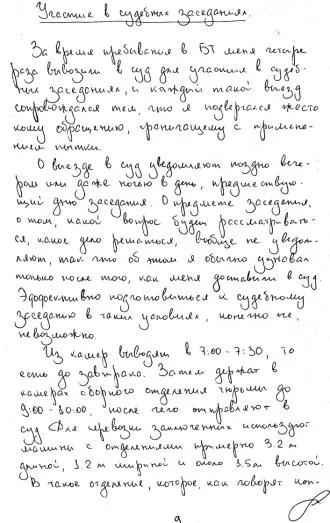 Участие в судебных заседаниях.
За время пребывания в БТ меня четыре
раза вывозили в суд для участия в судеб-
ных заседаниях, и каждый такой выезд
сопровождался тем, что я подвергался жесто
кому обращению, граничащему с примене-
нием пытки.
О выезде в суд уведомляют поздно вече-
ром или даже ночью в день, предшествую-
щий дню заседания. О предмете заседания,
о том, какой вопрос будет рассматривать-
ся, какое дело решаться, вообще не уведом-
ляют, так что об этом я обычно узнавал
только после того, как меня доставили в суд.
Эффективно подготовиться к судебному
заседанию в таких условиях, конечно же,
невозможно.
Из камер выводят в 7:00-7:30, то
есть до завтрака. Затем держат в
камерах сборного отделения тюрьмы до
9:00-10:00, после чего отправляют в
суд. Для перевозки заключенных используют
машины с отделениями примерно 3.2 м
длиной, 1.2 м шириной и около 1.5 м высотой.
В такое отделение, которое, как говорят кон-
9